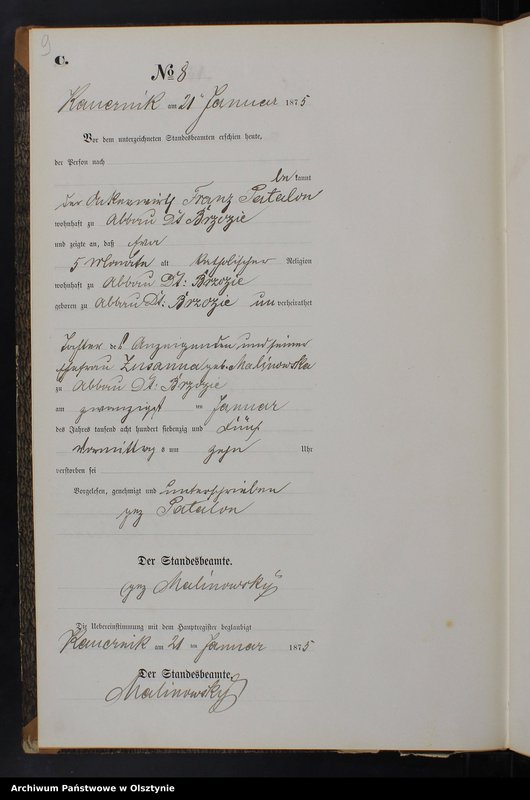 9
C.
No 8
Kauernik am 21 Januar 1875
Vor dem unterzeichneten Standesbeamten erschien heute,
der Person nach
bekannt
der Ackerwirth Franz Patalon
wohnhaft zu Abbau Dt Brzozie
und zeigte an, daß Eva
5 Monate alt katholischer Religion
wohnhaft zu Abbau Dt: Brzozie
geboren zu Abbau Dt: Brzozie unverheirathet
Tochter des Anzeigenden und seiner
Ehefrau Zusanna geb. Malinowska
zu Abbau Dt: Brzozie
am zwanzigst ten Januar
des Jahres tausend acht hundert siebenzig und Fünf
Vormittags um zehn Uhr
verstorben sei
Vorgelesen, genehmigt und unterschrieben
gez Patalon
Der Standesbeamte.
gez Malinowsky
Die Uebereinstimmung mit dem Hauptregister beglaubigt
Kauernik am 21 ten Januar 1875
Der Standesbeamte
Malinowsky
Archiwum Państwowe w Olsztynie